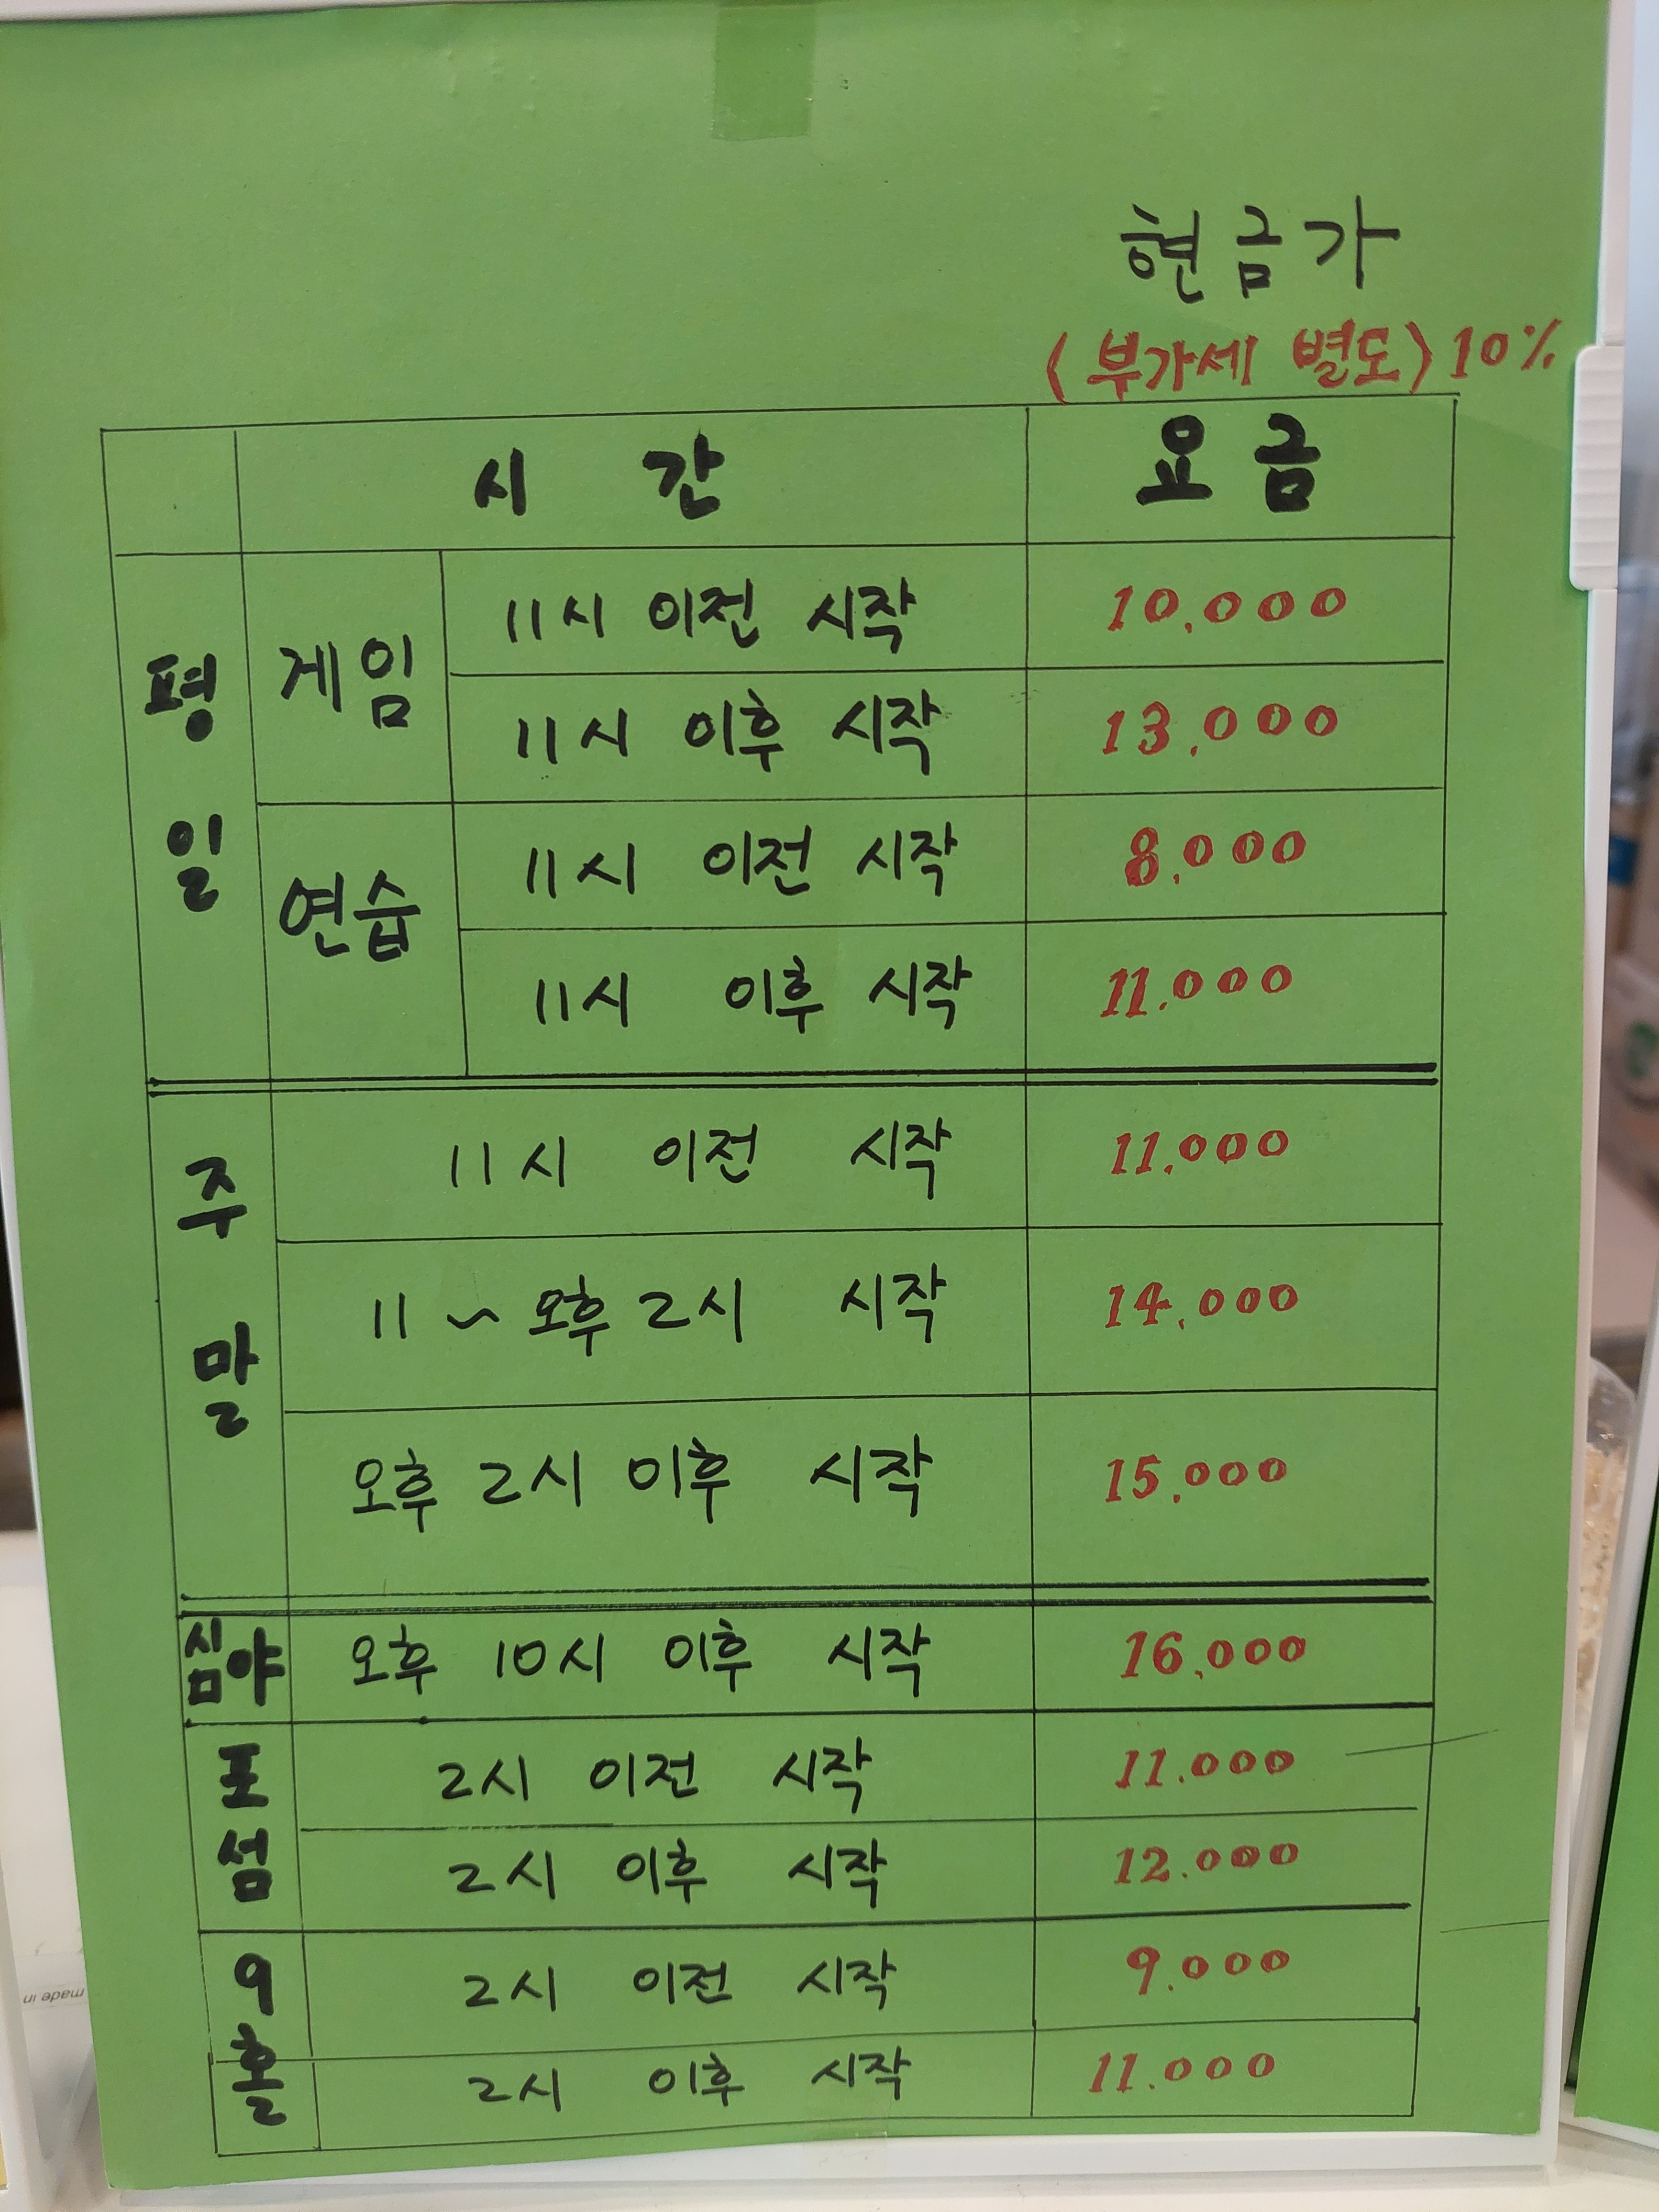 현금가
(부가세 별도) 10%
시간 요금
평일 게임 11시 이전 시작 10.000
11시 이후 시작 13.000
연습 11시 이전 시작 8.000
11시 이후 시작 11.000
주말 11시 이전 시작 11.000
11 ~ 오후 2시 시작 14.000
오후 2시 이후 시작 15.000
심야 오후 10시 이후 시작 16.000
포섬 2시 이전 시작 11.000
2시 이후 시작 12.000
9홀 2시 이전 시작 9.000
2시 이후 시작 11.000
made in